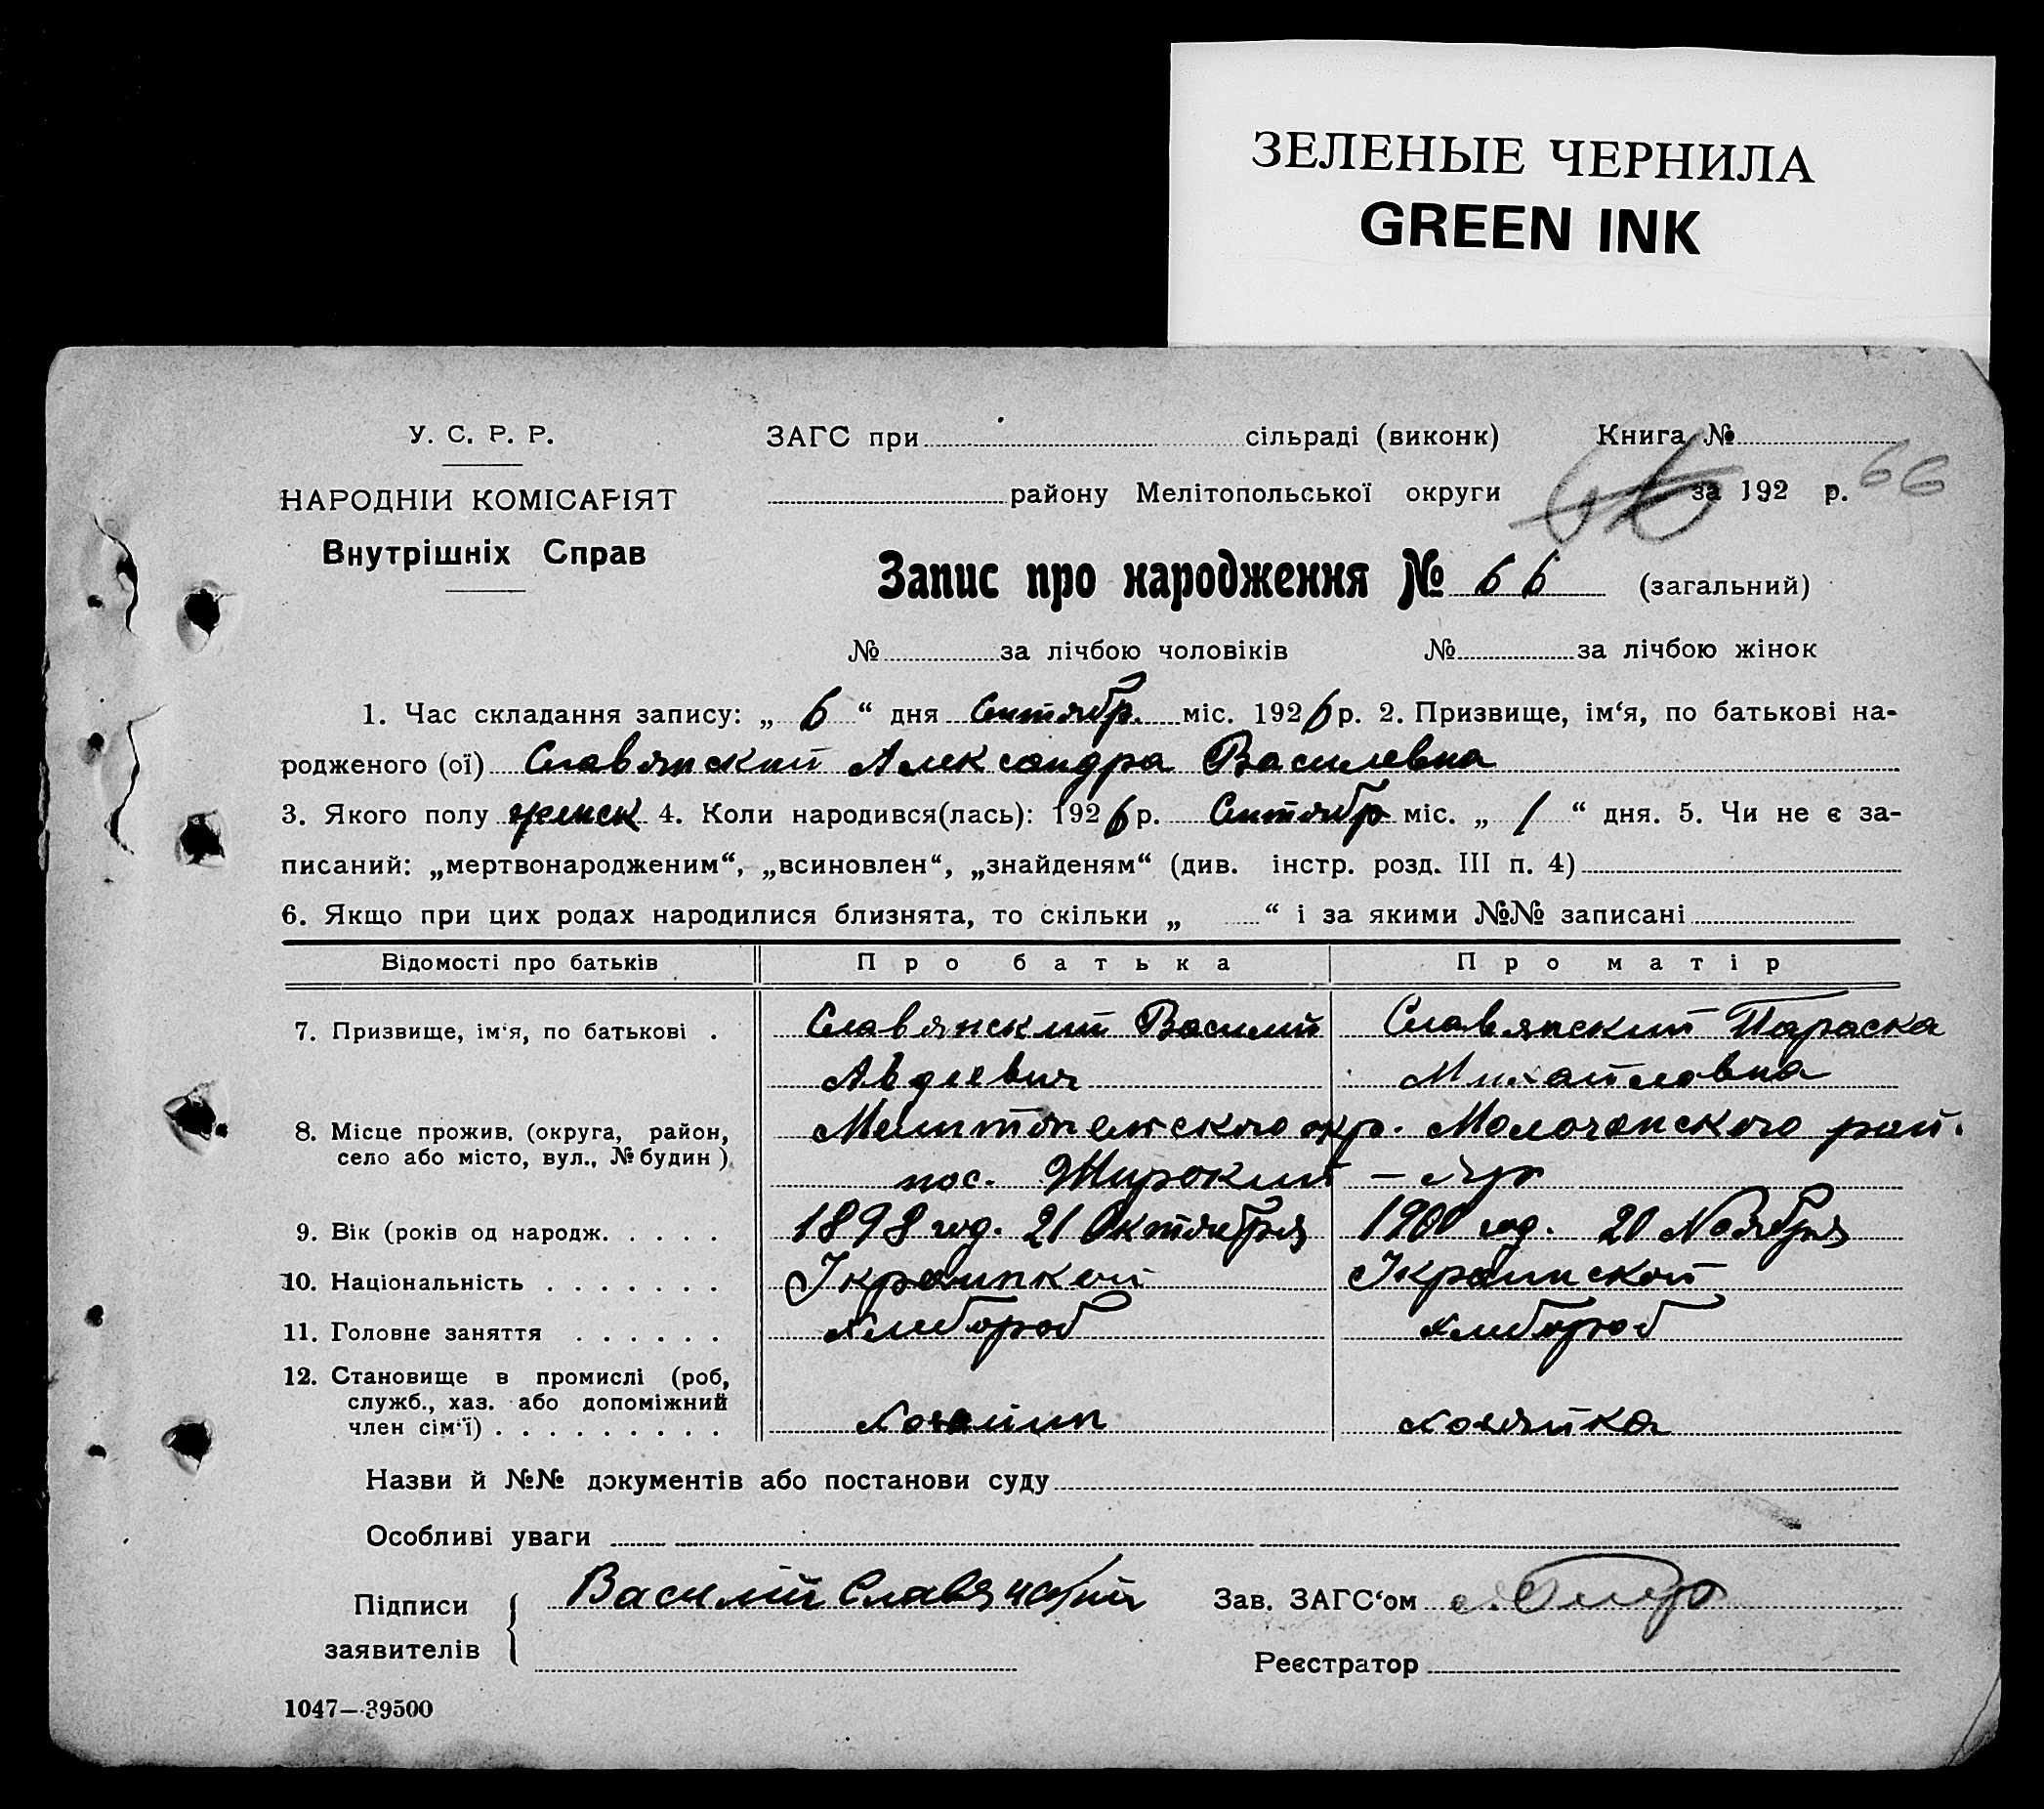 ЗЕЛЕНЫЕ ЧЕРНИЛА
GREEN INK
У. С. Р. Р.
НАРОДНІЙ КОМІСАРІЯТ
Внутрішніх Справ
ЗАГС при сільраді (виконк) Книга №
району Мелітопольської округи за 192 р. 66
66
Запис про народження № 66 (загальний)
№ за лічбою чоловіків № за лічбою жінок
1. Час складання запису: „ 6 “ дня Сентябр. міс. 1926 р. 2. Призвище, ім‘я, по батькові на-
родженого (ої) Славянский Александра Василевна
3. Якого полу женск 4. Коли народився(лась): 1926 р. Сентябр міс. „ 1 “ дня. 5. Чи не є за-
писаний: „мертвонародженим“, „всиновлен“, „знайденям“ (див. інстр. розд. III п. 4)
6. Якщо при цих родах народилися близнята, то скільки „ “ і за якими №№ записані
Відомості про батьків Про батька Про матір
7. Призвище, ім‘я, по батькові . Славянский Василий Славянский Параска
Авдеевич Михайловна
8. Місце прожив. (округа, район, село або місто, вул., № будин) Мелитопольского окр. Молочанского рай.
пос. Широкий – Яр
9. Вік (років од народж. . . . . 1898 год. 21 Октября 1900 год. 20 Ноября
10. Національність . . . . . . . Украинкой Украинской
11. Головне заняття . . . . . . Хлибороб Хлибороб
12. Становище в промислі (роб,
служб., хаз. або допоміжний
член сім‘ї) . . . . . . . . . Хозяин хозяйка
Назви й №№ документів або постанови суду
Особливі уваги
Підписи заявителів Василий Славянский Зав. ЗАГС‘ом
Реєстратор
1047—39500